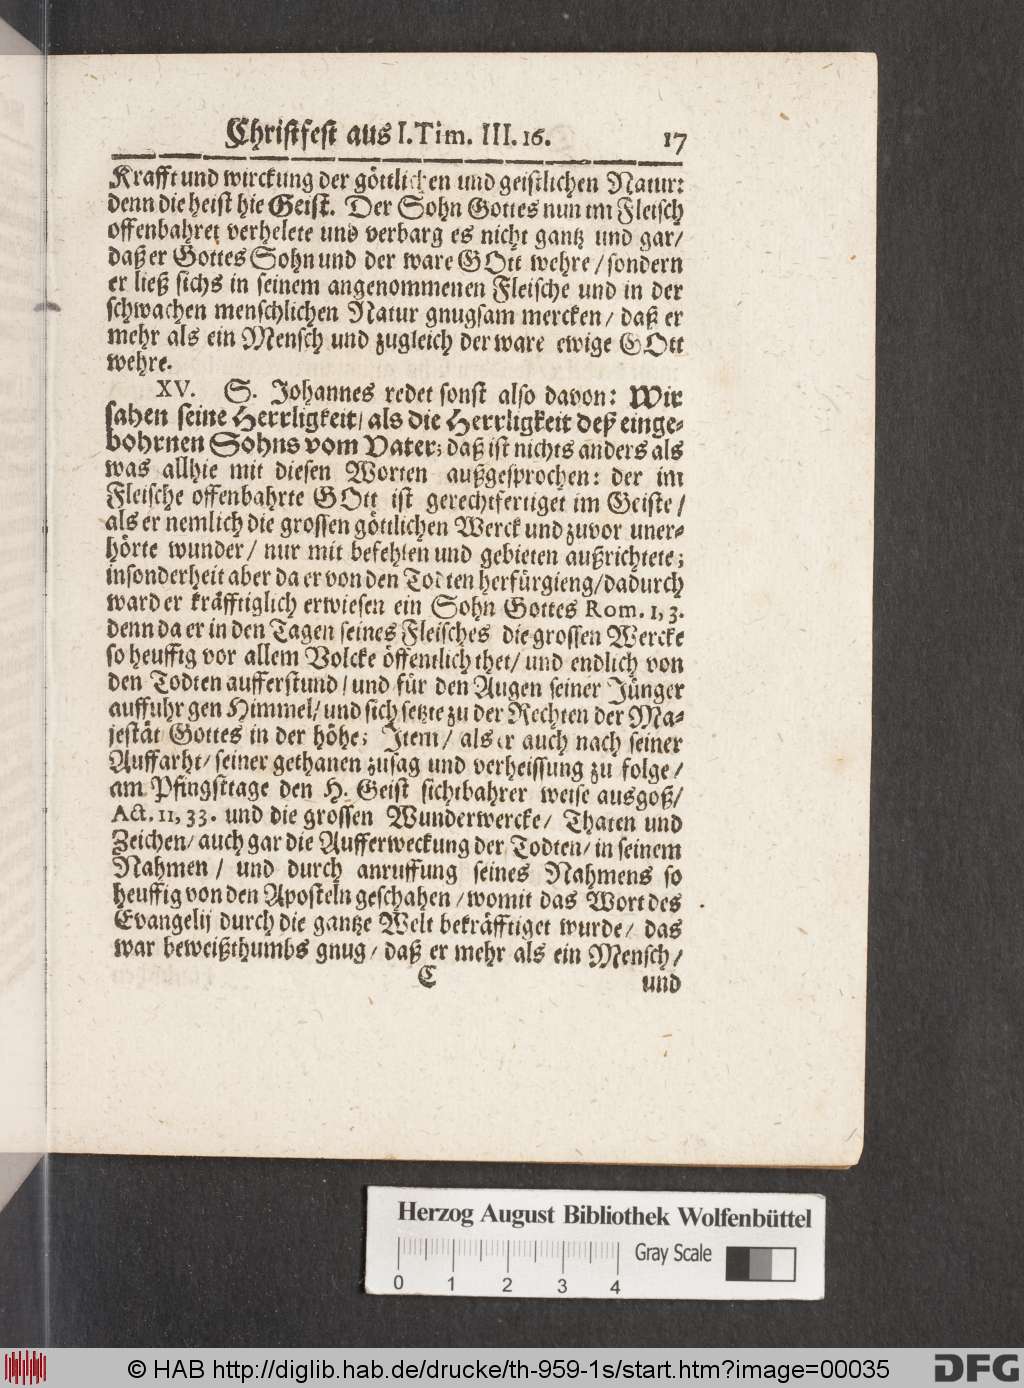 Christfest aus I. Tim. III. 16. 17
Krafft und wirckung der göttlichen und geistlichen Natur:
denn die heist hie Geist. Der Sohn Gottes nun im Fleisch
offenbahret verhelete und verbarg es nicht gantz und gar/
daß er Gottes Sohn und der ware GOtt wehre/ sondern
er ließ sichs in seinem angenommenen Fleische und in der
schwachen menschlichen Natur gnugsam mercken/ daß er
mehr als ein Mensch und zugleich der ware ewige GOtt
wehre.
XV. S. Johannes redet sonst also davon: Wir
sahen seine Herrligkeit/ als die Herrligkeit deß einge-
bohrnen Sohns vom Vater; daß ist nichts anders als
was allhie mit diesen Worten außgesprochen: der im
Fleische offenbahrte GOtt ist gerechtfertiget im Geiste/
als er nemlich die grossen göttlichen Werck und zuvor uner-
hörte wunder/ nur mit befehlen und gebieten außrichtete;
insonderheit aber da er von den Todten herfürgieng/ dadurch
ward er kräfftiglich erwiesen ein Sohn Gottes Rom. 1, 3.
denn da er in den Tagen seines Fleisches die grossen Wercke
so heuffig vor allem Volcke öffentlich thet/ und endlich von
den Todten aufferstund/ und für den Augen seiner Jünger
auffuhr gen Himmel/ und sich setzte zu der Rechten der Ma-
jestät Gottes in der höhe; Item/ als er auch nach seiner
Auffarht/ seiner gethanen zusag und verheissung zu folge/
am Pfingsttage den H. Geist sichtbahrer weise ausgoß/
Act. 11, 33. und die grossen Wunderwercke/ Thaten und
Zeichen/ auch gar die Aufferweckung der Todten/ in seinem
Nahmen/ und durch anruffung seines Nahmens so
heuffig von den Aposteln geschahen/ womit das Wort des
Evangelij durch die gantze Welt bekräfftiget wurde/ das
war beweißthumbs gnug/ daß er mehr als ein Mensch/
C und
Herzog August Bibliothek Wolfenbüttel
Gray Scale
0 1 2 3 4
© HAB http://diglib.hab.de/drucke/th-959-1s/start.htm?image=00035
DFG